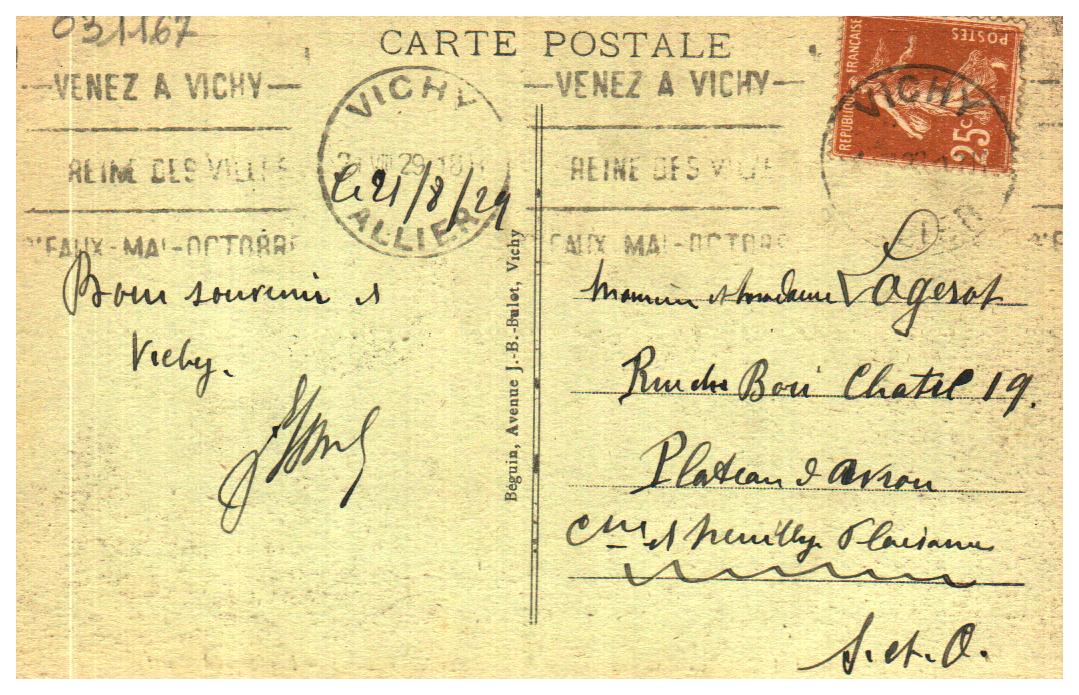 031167
CARTE POSTALE
VENEZ A VICHY
REINE DES VILLES
D'EAUX-MAI-OCTOBRE
VICHY
VIII 29
ALLIER
VENEZ A VICHY
REINE DES VILLES
D'EAUX MAI-OCTOBRE
REPUBLIQUE FRANÇAISE
POSTES
25c
VICHY
ALLIER
le 21/8/29
Bon souvenir de
Vichy.
Béguin, Avenue J.-B.-Bulot, Vichy
Monsieur et Madame Lagerot
Rue du Bois Chatel 19.
Plateau d'Avron
Cne de Neuilly Plaisance
S. et. O.